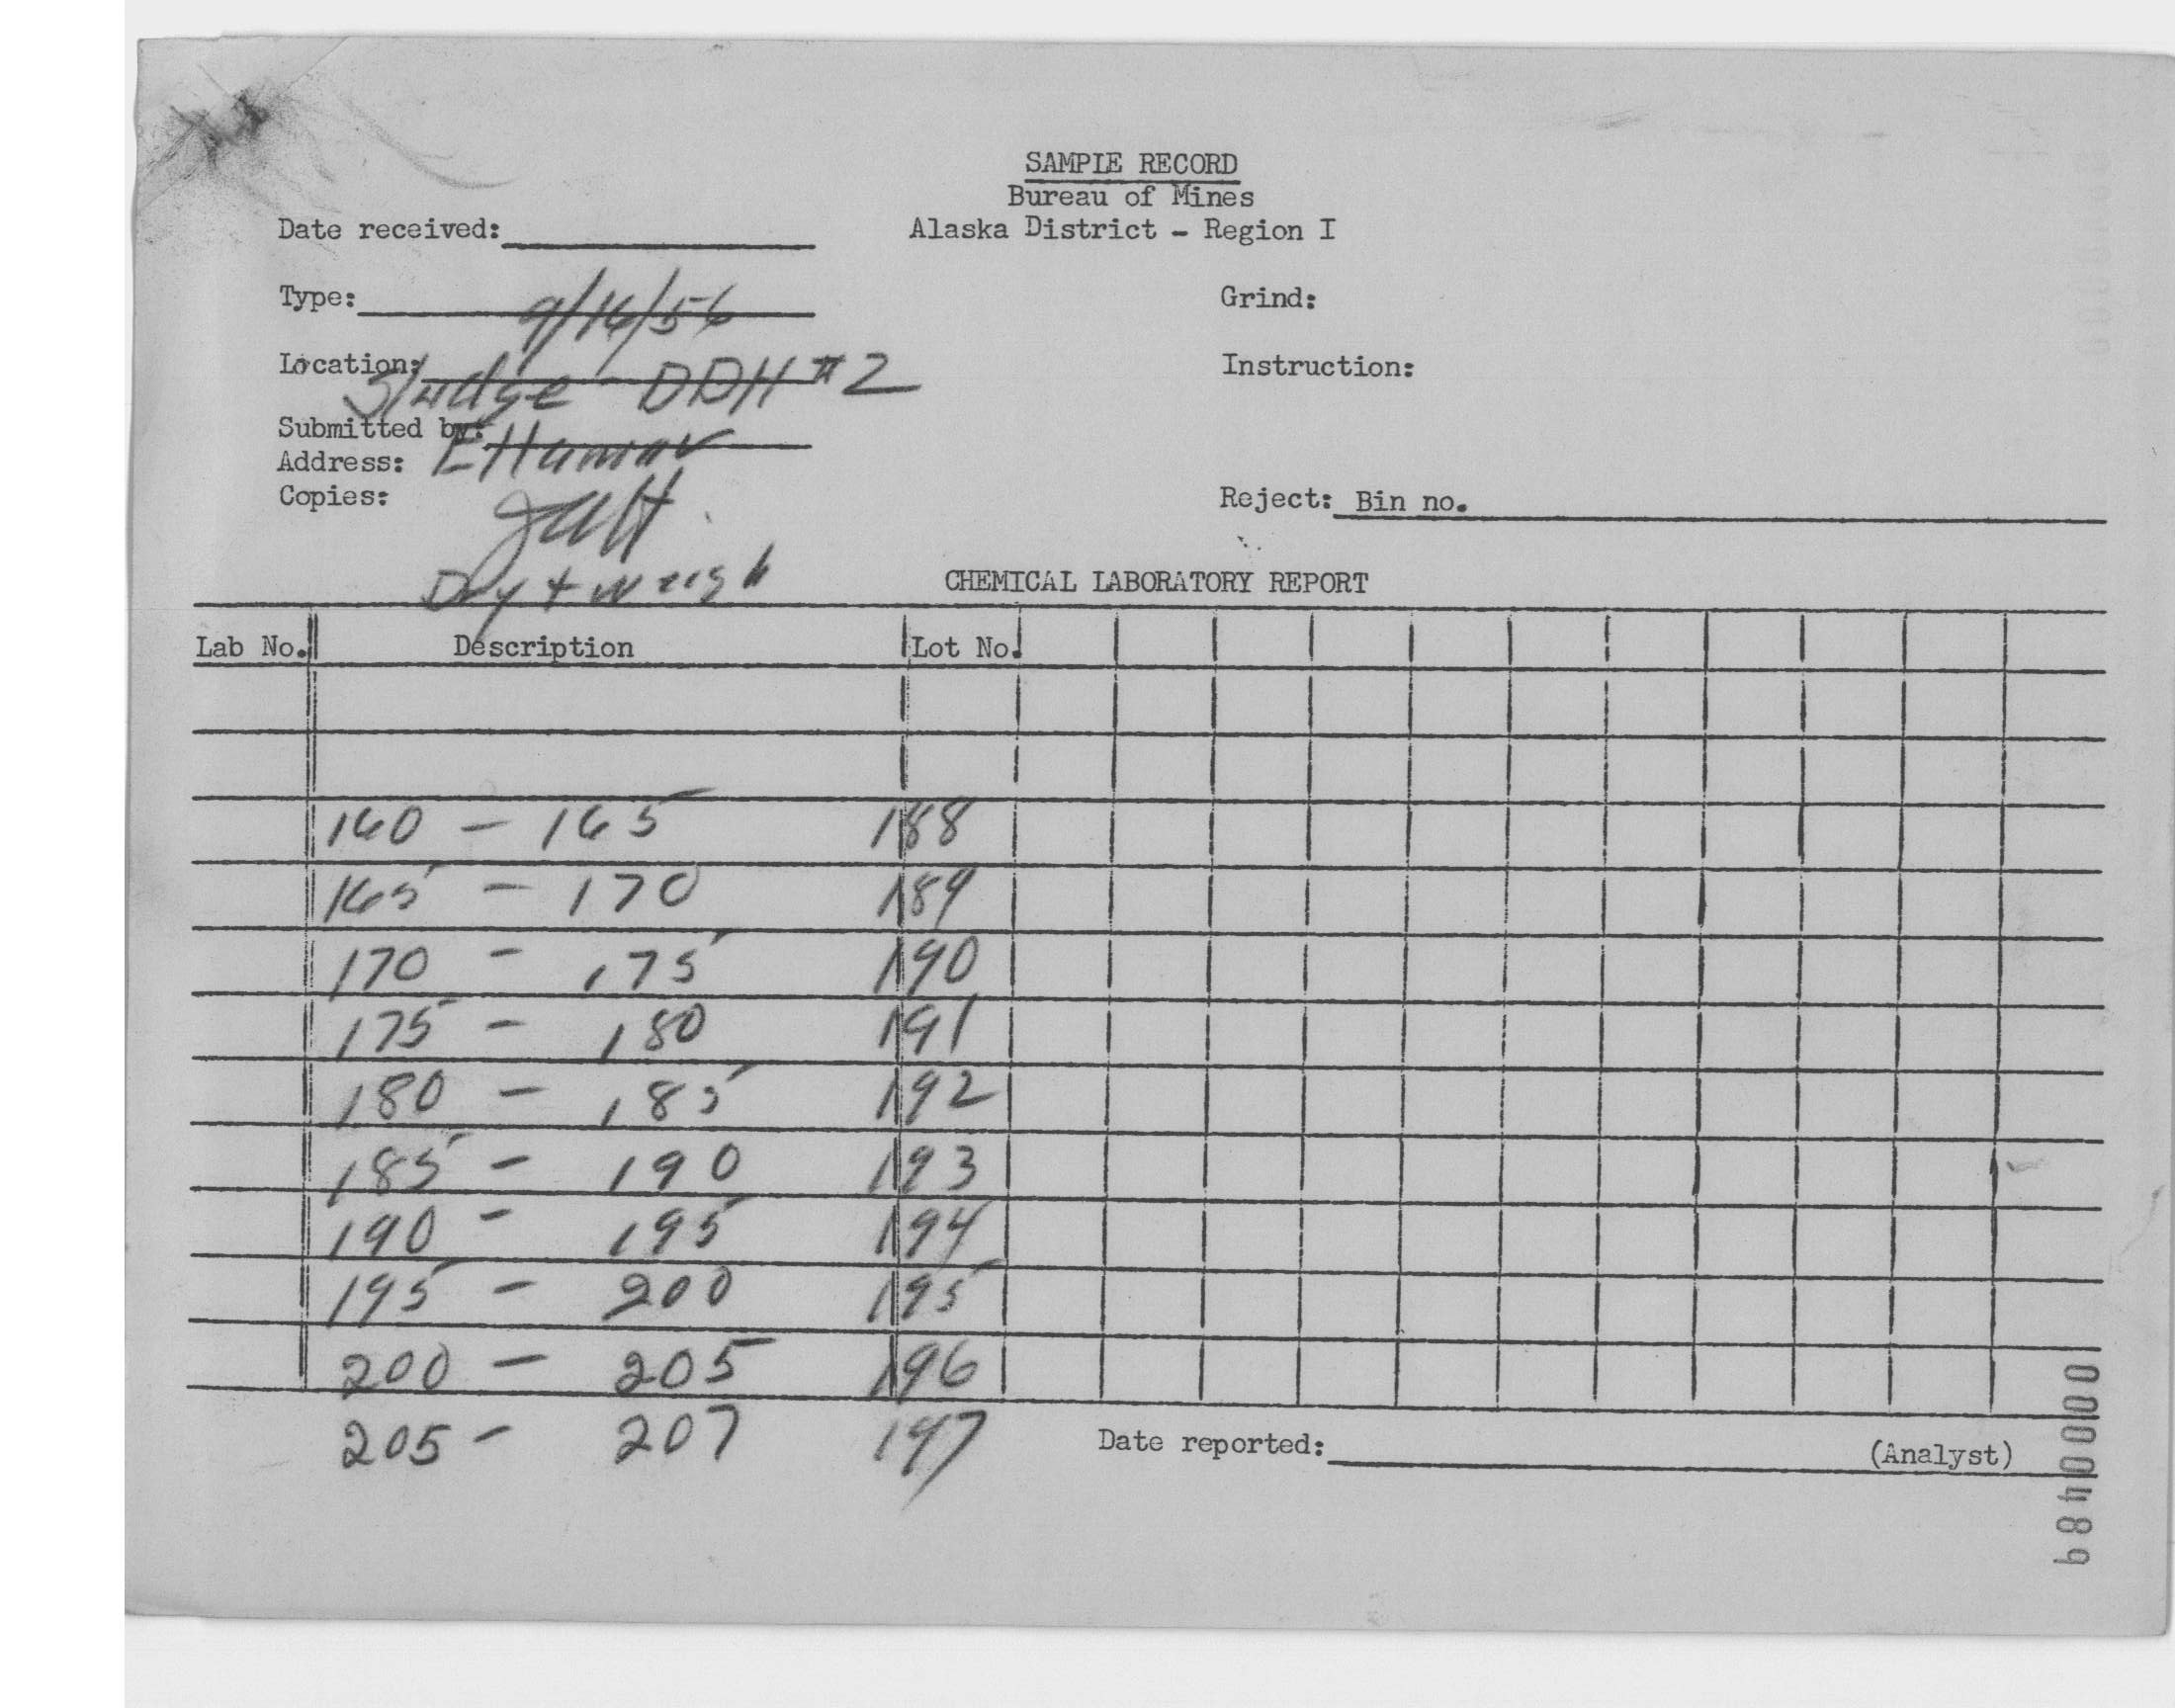 SAMPLE RECORD
Bureau of Mines
Date received:
Alaska District - Region I
Type: 9/16/56
Grind:
Location: Sludge - DDH #2
Instruction:
Submitted by:
Address:
Copies:
Reject: Bin no.
Dry + weigh
CHEMICAL LABORATORY REPORT
Lab No. Description Lot No.
160 - 165 188
165 - 170 189
170 - 175 190
175 - 180 191
180 - 185 192
185 - 190 193
190 - 195 194
195 - 200 195
200 - 205 196
205 - 207 197
Date reported: (Analyst)
0000489